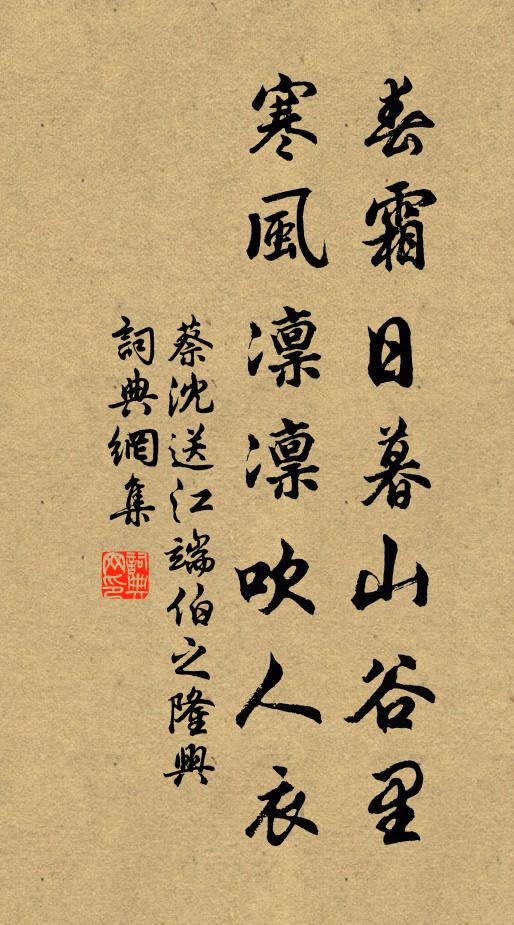 春霜日暮山谷里
寒風凛凛吹人衣
蔡沈送江端伯之隆興
詞典網集
詞典網印